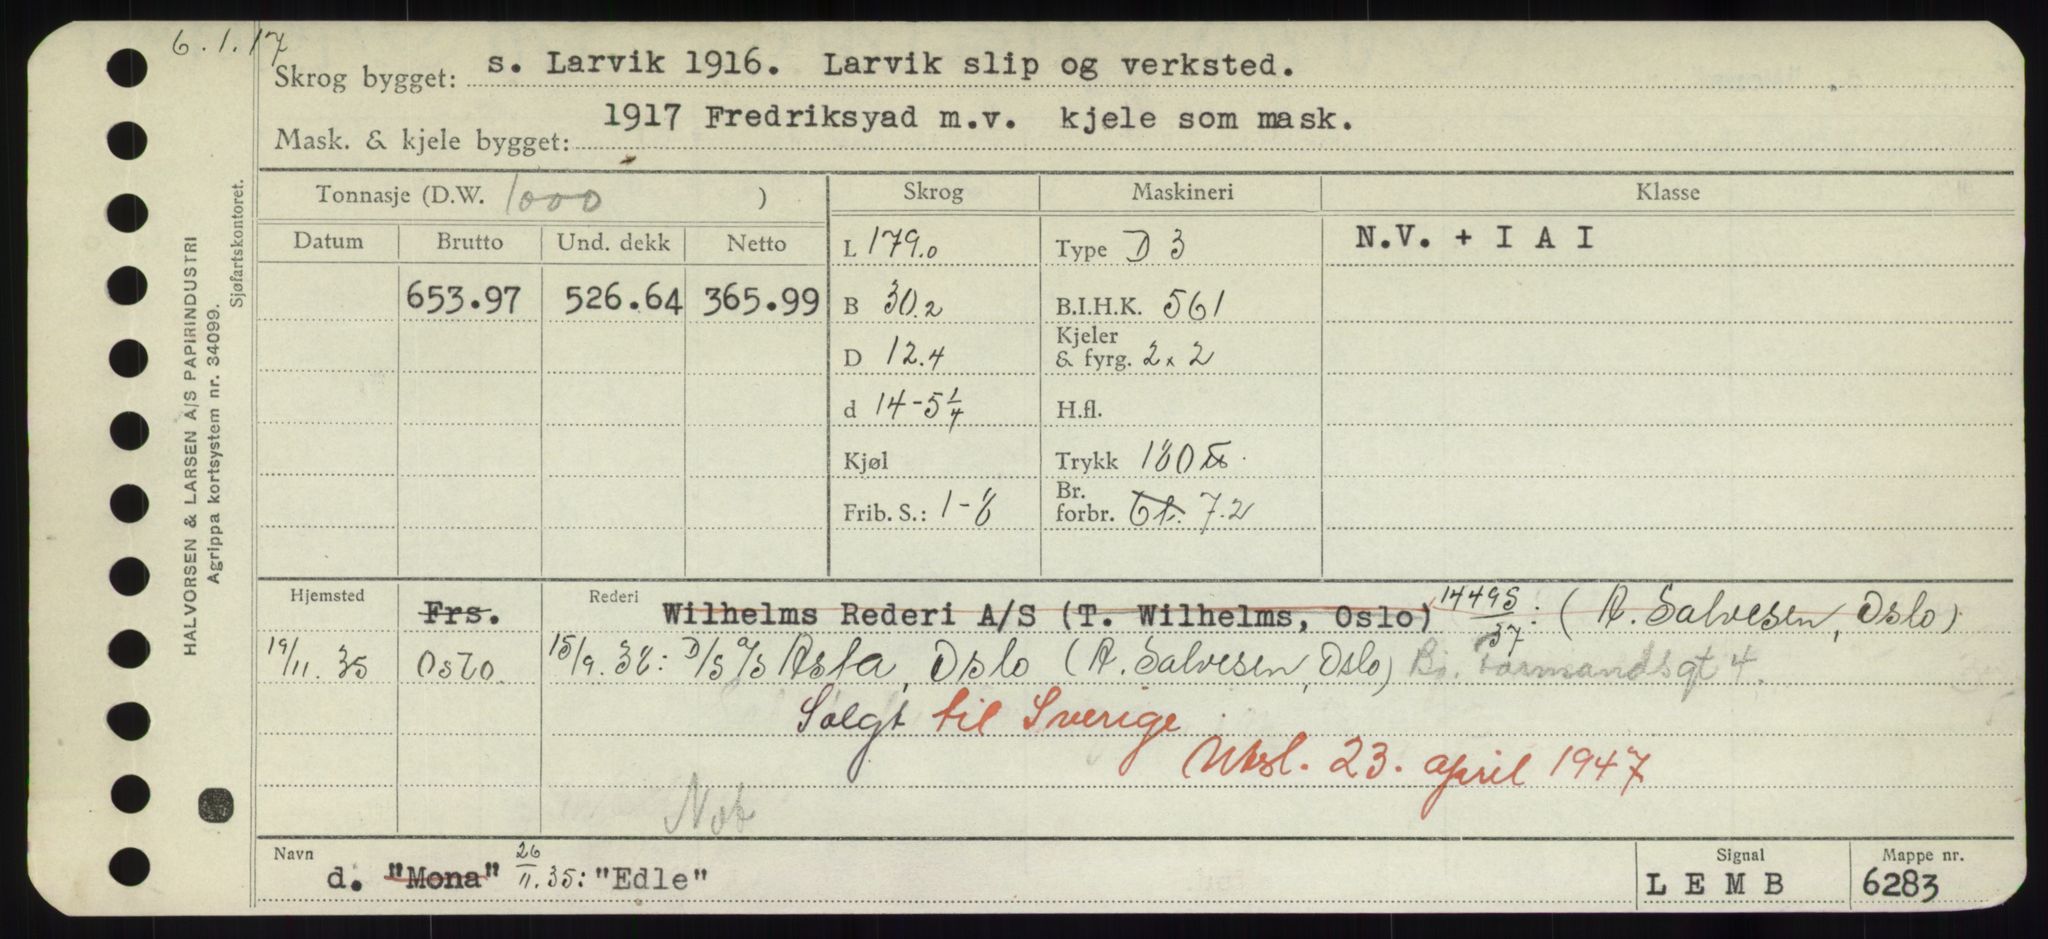 6.1.17
Skrog bygget: s. Larvik 1916. Larvik slip og verksted.
Mask. & kjele bygget: 1917 Fredriksyad m.v. kjele som mask.
HALVORSEN & LARSEN A/S PAPIRINDUSTRI
Agrippa kortsystem nr. 34099.
Sjøfartskontoret.
Tonnasje (D.W. 1000 )
Skrog
Maskineri
Klasse
Datum Brutto Und. dekk Netto
653.97 526.64 365.99
L 179.0
B 30.2
D 12.4
d 14-5 1/4
Kjøl
Frib. S.: 1-8
Type D 3
B.I.H.K. 561
Kjeler
& fyrg. 2 x 2
H.fl.
Trykk 180
Br.
forbr. 6 t. 7.2
N.V. + I A I
Hjemsted Frs. Rederi Wilhelms Rederi A/S (T. Wilhelms, Oslo) 14495/37: (A. Salvesen, Oslo)
19/11.35 Oslo. 15/9.38: D/S a/s Asta, Oslo (A. Salvesen, Oslo) gt 4.
Solgt til Sverige
23. april 1947
Not
Navn d. "Mona" 26/11.35: "Edle"
Signal L E M B
Mappe nr. 6283